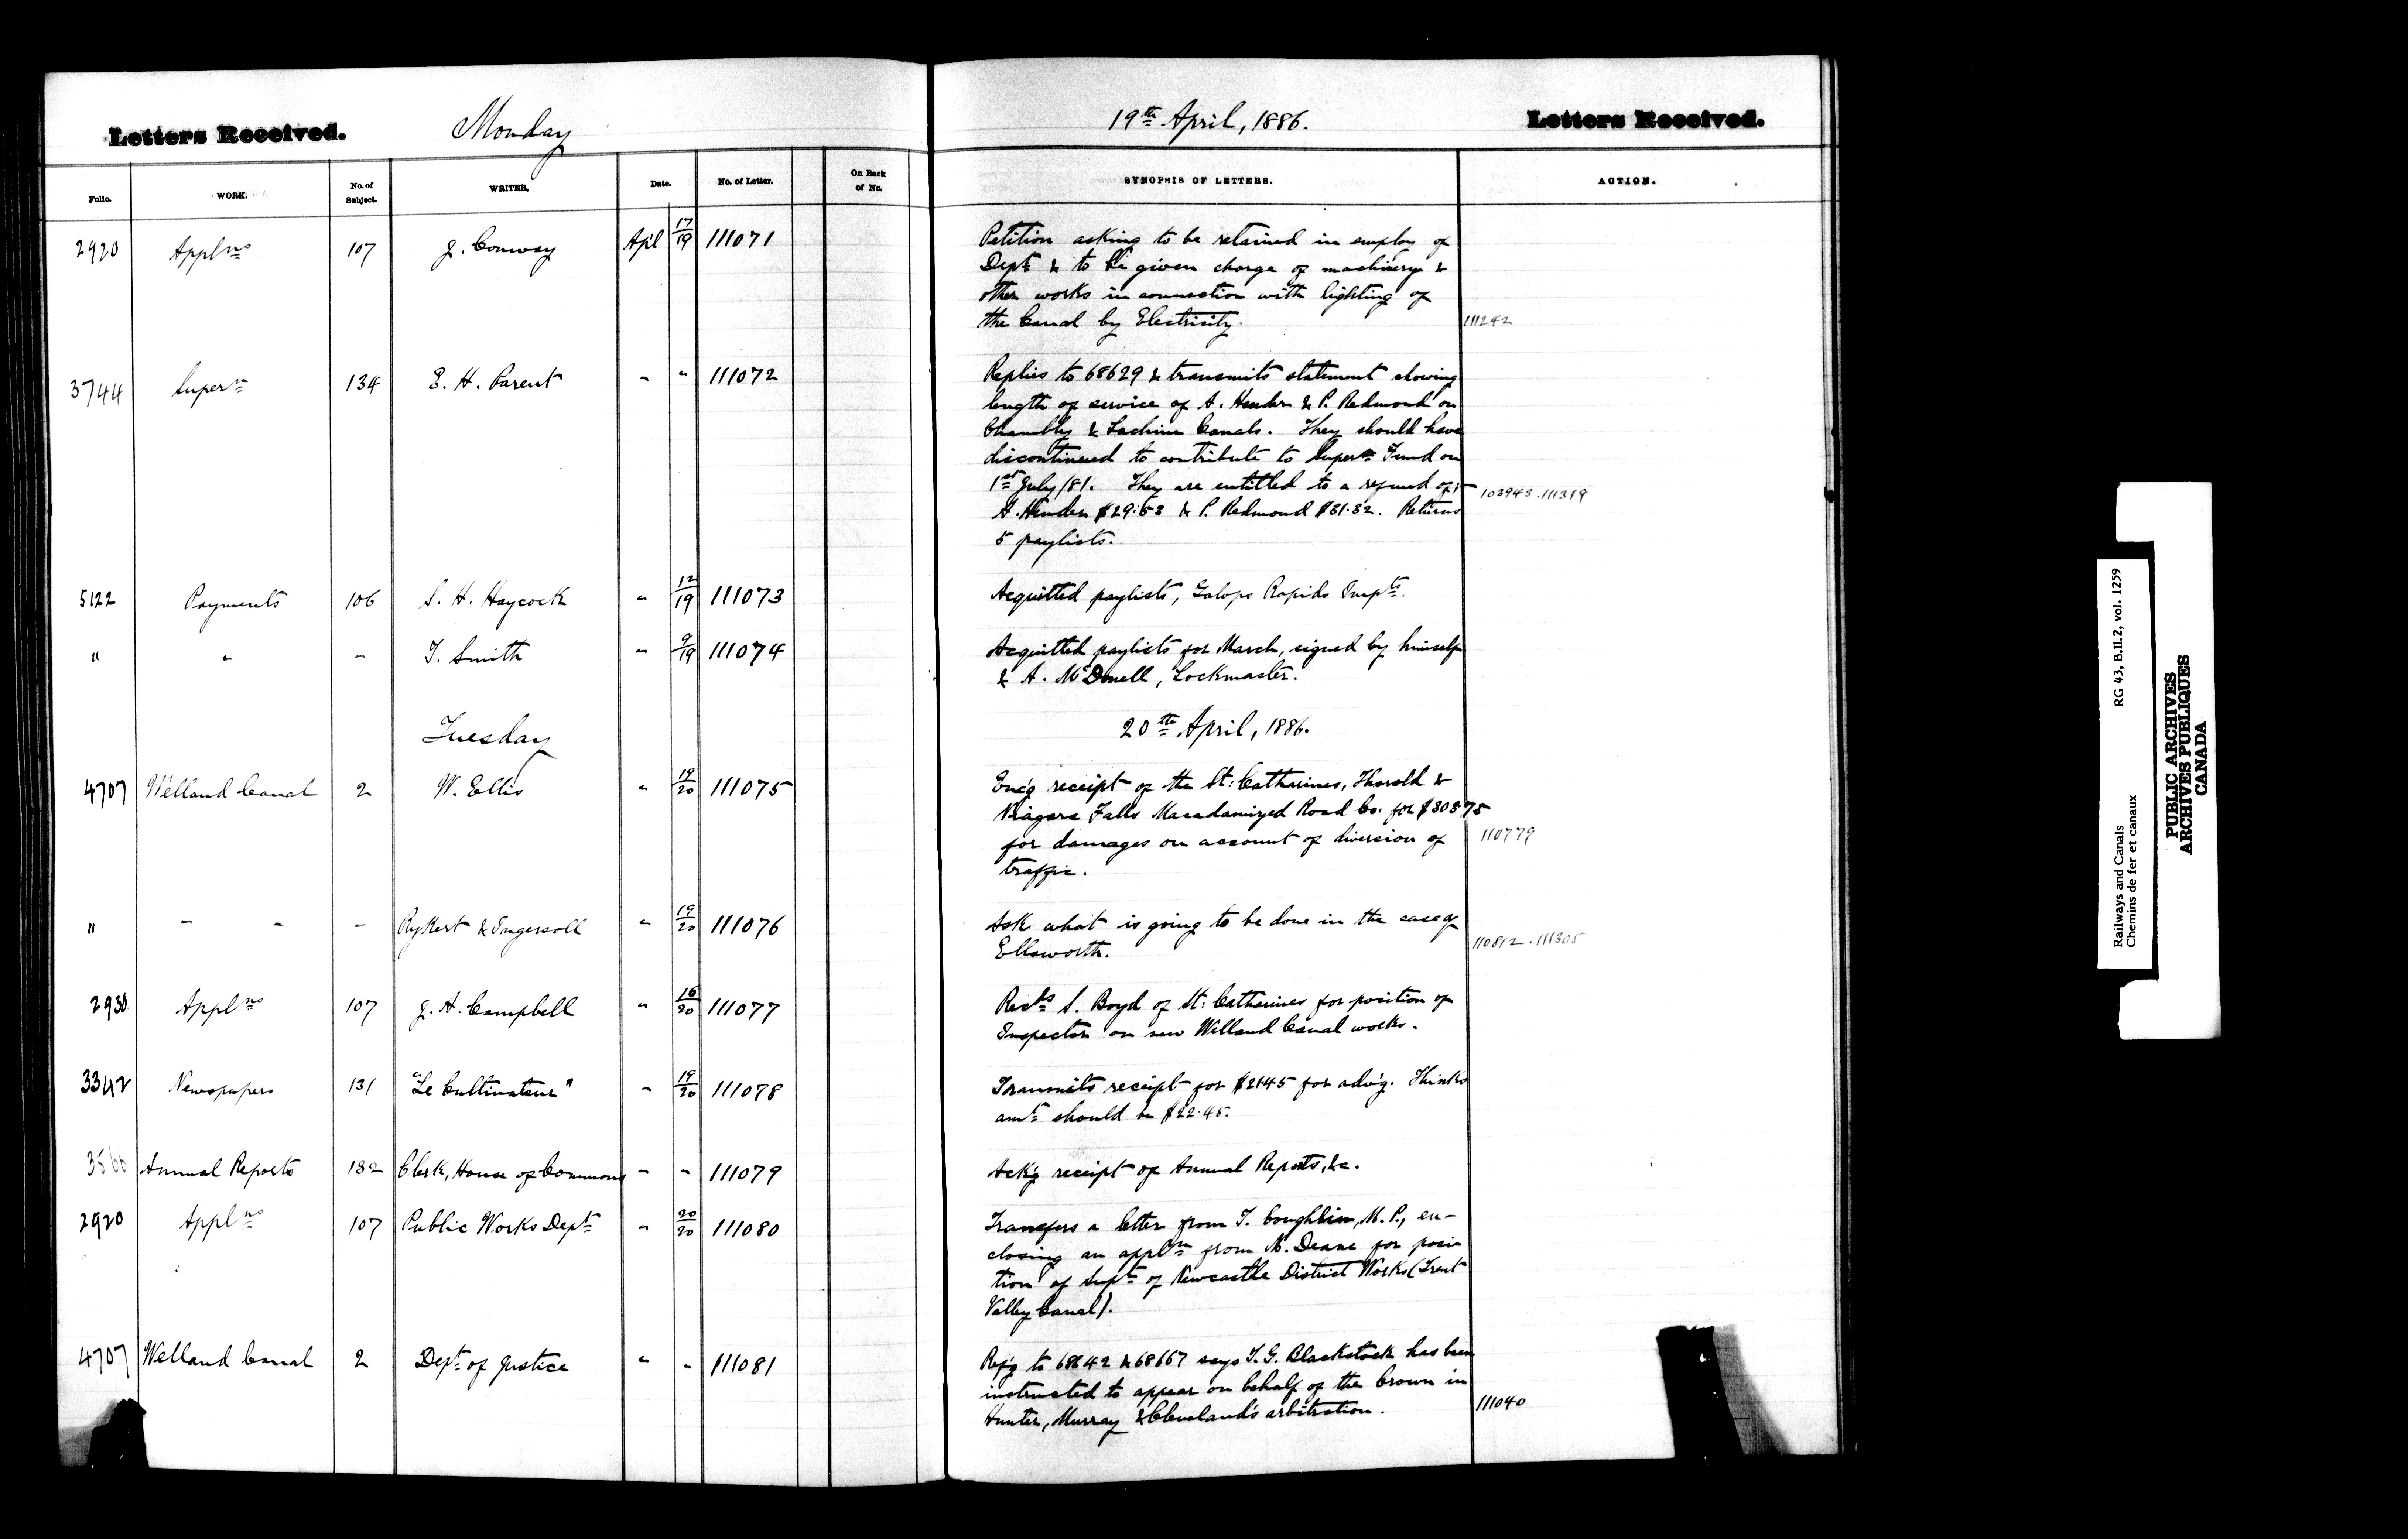 Letters Received.
Monday
19th April, 1886.
Letters Received.
Folio.
WORK.
No. of Subject.
WRITER.
Date.
No. of Letter.
On Back of No.
SYNOPSIS OF LETTERS.
ACTION.
2920 Applns 107 J. Conway Apl 17/19 111071
Petition asking to be retained in employ of
Dept & to be given charge of machinery &
other works in connection with lighting of
the Canal by Electricity.
111242
3744 Supern 134 E. H. Parent " " 111072
Replies to 68629 & transmits statement showing
length of service of A. Hender & P. Redmond on
Chambly & Lachine Canals. They should have
discontinued to contribute to Supern Fund on
1st July/81. They are entitled to a refund of:-
103943.111319
A. Hender $29.53 & P. Redmond $31.32. Returns
5 paylists.
5122 Payments 106 S. H. Haycock " 12/19 111073
Acquitted paylists, Galops Rapids Impts.
" " " T. Smith " 9/19 111074
Acquitted paylists for March, signed by himself
& A. McDonell, Lockmaster.
Tuesday
20th April, 1886.
4707 Welland Canal 2 W. Ellis " 19/20 111075
Enc'g receipt of the St: Catharines, Thorold &
Niagara Falls Macadamized Road Co. for $308.75
for damages on account of diversion of
110779
traffic.
" " " " Rykert & Ingersoll " 19/20 111076
Ask what is going to be done in the case of
Ellsworth.
110812.111305
2930 Applns 107 J. A. Campbell " 16/20 111077
Recds S. Boyd of St: Catharines for position of
Inspector on new Welland Canal works.
3342 Newspapers 131 "Le Cultivateur" " 19/20 111078
Transmits receipt for $21.45 for adv'g. Thinks
amt should be $22.45.
Annual Reports 132 Clerk, House of Commons " " 111079
Ack'g receipt of Annual Reports, &c.
2920 Applns 107 Public Works Dept " 20/20 111080
Transfers a letter from T. Coughlin, M.P., en-
closing an appln from M. Deane for posi
tion of Supt of Newcastle District Works (Trent
Valley Canal).
4707 Welland Canal 2 Dept of Justice " " 111081
Ref'g to 68642 & 68667 says T. G. Blackstock has been
instructed to appear on behalf of the Crown in
Hunter, Murray & Cleveland's arbitration.
111040
Railways and Canals
Chemins de fer et canaux
RG 43, B.II.2, vol. 1259
PUBLIC ARCHIVES
ARCHIVES PUBLIQUES
CANADA